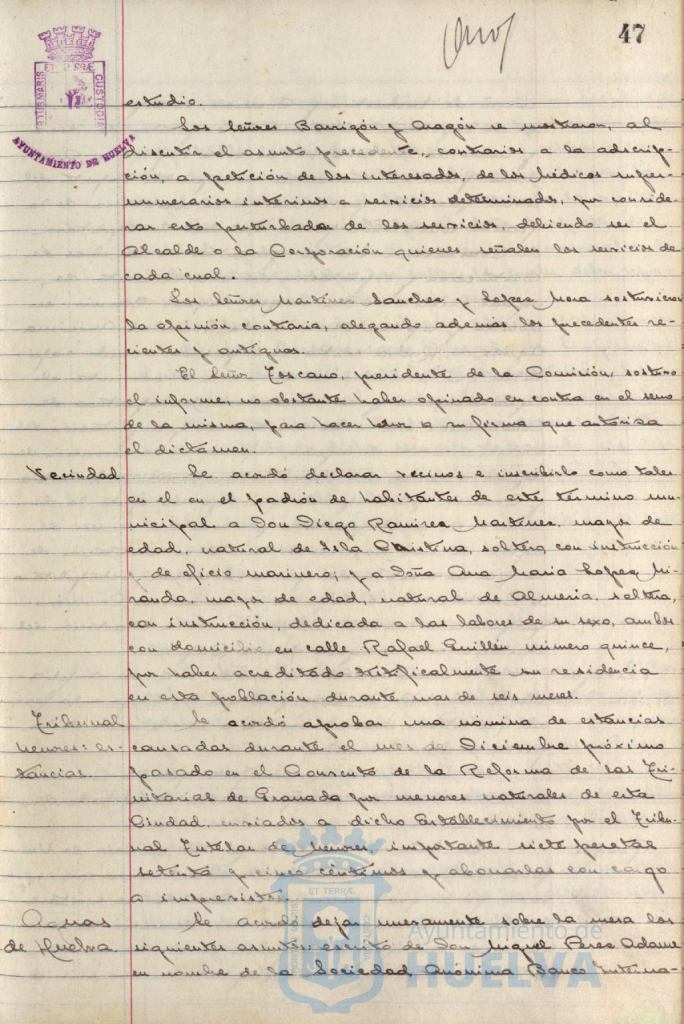 47
PORTUS MARIS ET TERRÆ CUSTODIA
AYUNTAMIENTO DE HUELVA
estudio.
Los Señores Barrigón y Aragón se mostraron, al
discutir el asunto precedente, contrarios a la adscrip-
ción, a petición de los interesados, de los Médicos super-
numerarios interinos a servicios determinados, por conside-
rar esto perturbador de los servicios, debiendo ser el
Alcalde o la Corporación quienes señalen los servicios de
cada cual.
Los Señores Martinez Sanchez y Lopez Mora sostuvieron
la opinión contraria, alegando además los precedentes re-
cientes y antiguos.
El Señor Toscano, presidente de la Comisión, sostuvo
el informe, no obstante haber opinado en contra en el seno
de la misma, para hacer honor a su firma que autoriza
el dictámen.
Vecindad
Se acordó declarar vecinos e inscribirlo como tales
en el en el padrón de habitantes de este término mu-
nicipal a Don Diego Ramirez Martinez, mayor de
edad, natural de Isla Cristina, soltero, con instrucción
y de oficio marinero; y a Doña Ana Maria Lopez Mi-
randa, mayor de edad, natural de Almeria, soltera,
con instrucción, dedicada a las labores de su sexo, ambos
con domicilio en calle Rafael Guillén número quince,
por haber acreditado testificalmente su residencia
en esta población durante mas de seis meses.
Tribunal
menores: es-
tancias.
Se acordó aprobar una nómina de estancias
causadas durante el mes de Diciembre próximo
pasado en el Convento de la Reforma de las Tri-
nitarias de Granada por menores naturales de esta
Ciudad, enviados a dicho Establecimiento por el Tribu-
nal Tutelar de Menores, importante siete pesetas
setenta y cinco céntimos y abonarlas con cargo
a imprevistos.
Aguas
de Huelva
Se acordó dejar nuevamente sobre la mesa los
siguientes asuntos: escrito de Don Miguel Perez Adame
en nombre de la Sociedad Anónima Banco Interna-
Ayuntamiento de
HUELVA